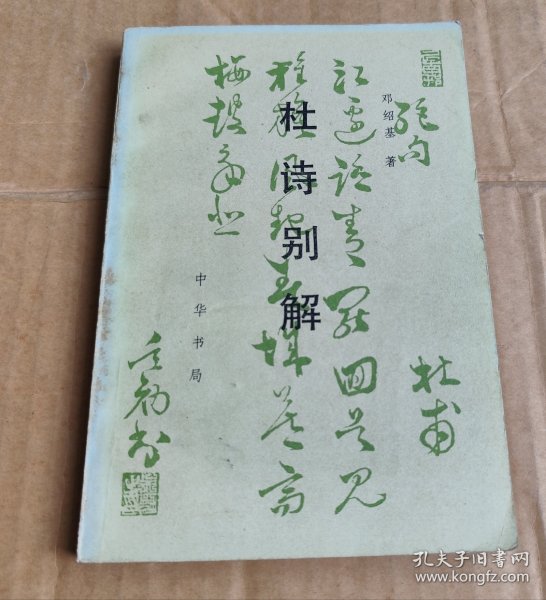 绝句
杜甫
邓绍基 著
江边踏青罷回首見
旌旗風起春城暮高
楼鼓角悲
杜诗别解
中华书局
孔夫子旧书网
www.kongfz.com